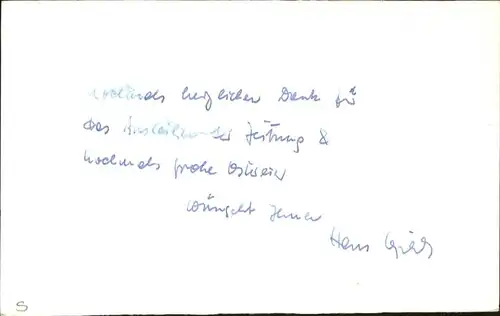 nochmals herzlichen Dank für
das Ausleihen der Zeitung &
nochmals frohe Ostern
wünscht Ihnen
Hans
S